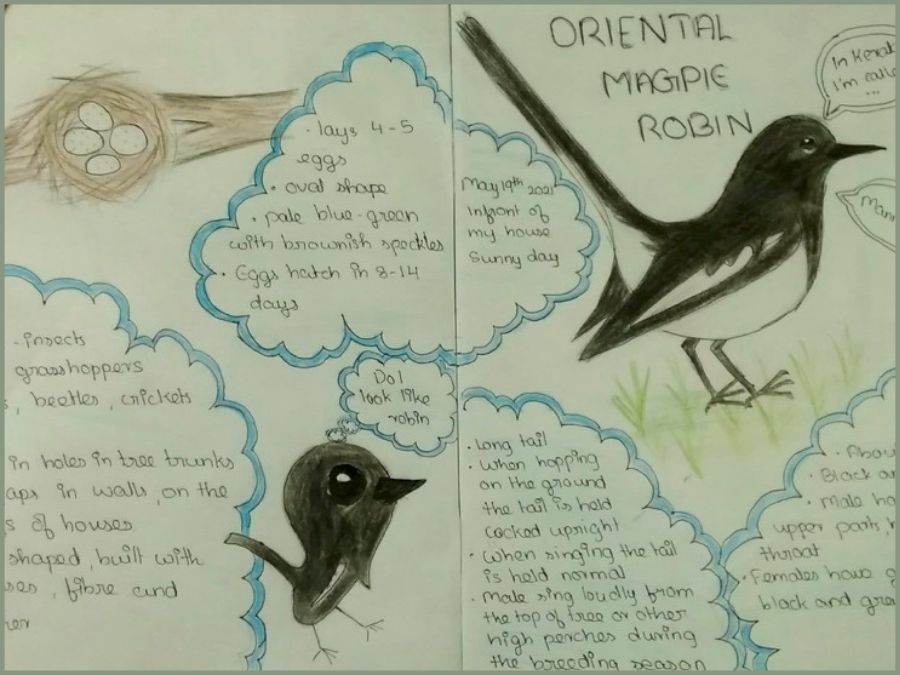 ORIENTAL
MAGPIE
ROBIN
In
I'm
...
• lays 4-5
eggs
• oval shape
• pale blue-green
with brownish speckles
• Eggs hatch in 8-14
days
May 19th 2021
Infront of
my house
Sunny day
- insects
grasshoppers
, beetles, crickets
in holes in tree trunks
in walls, on the
of houses
shaped, built with
, fibre and
Do I
look like
robin
• Long tail
• When hopping
on the ground
the tail is held
cocked upright
• When singing the tail
is held normal
• Male sing loudly from
the top of tree or other
high perches during
the breeding season
• Black
• Male
upper parts,
throat
• Females have
black and